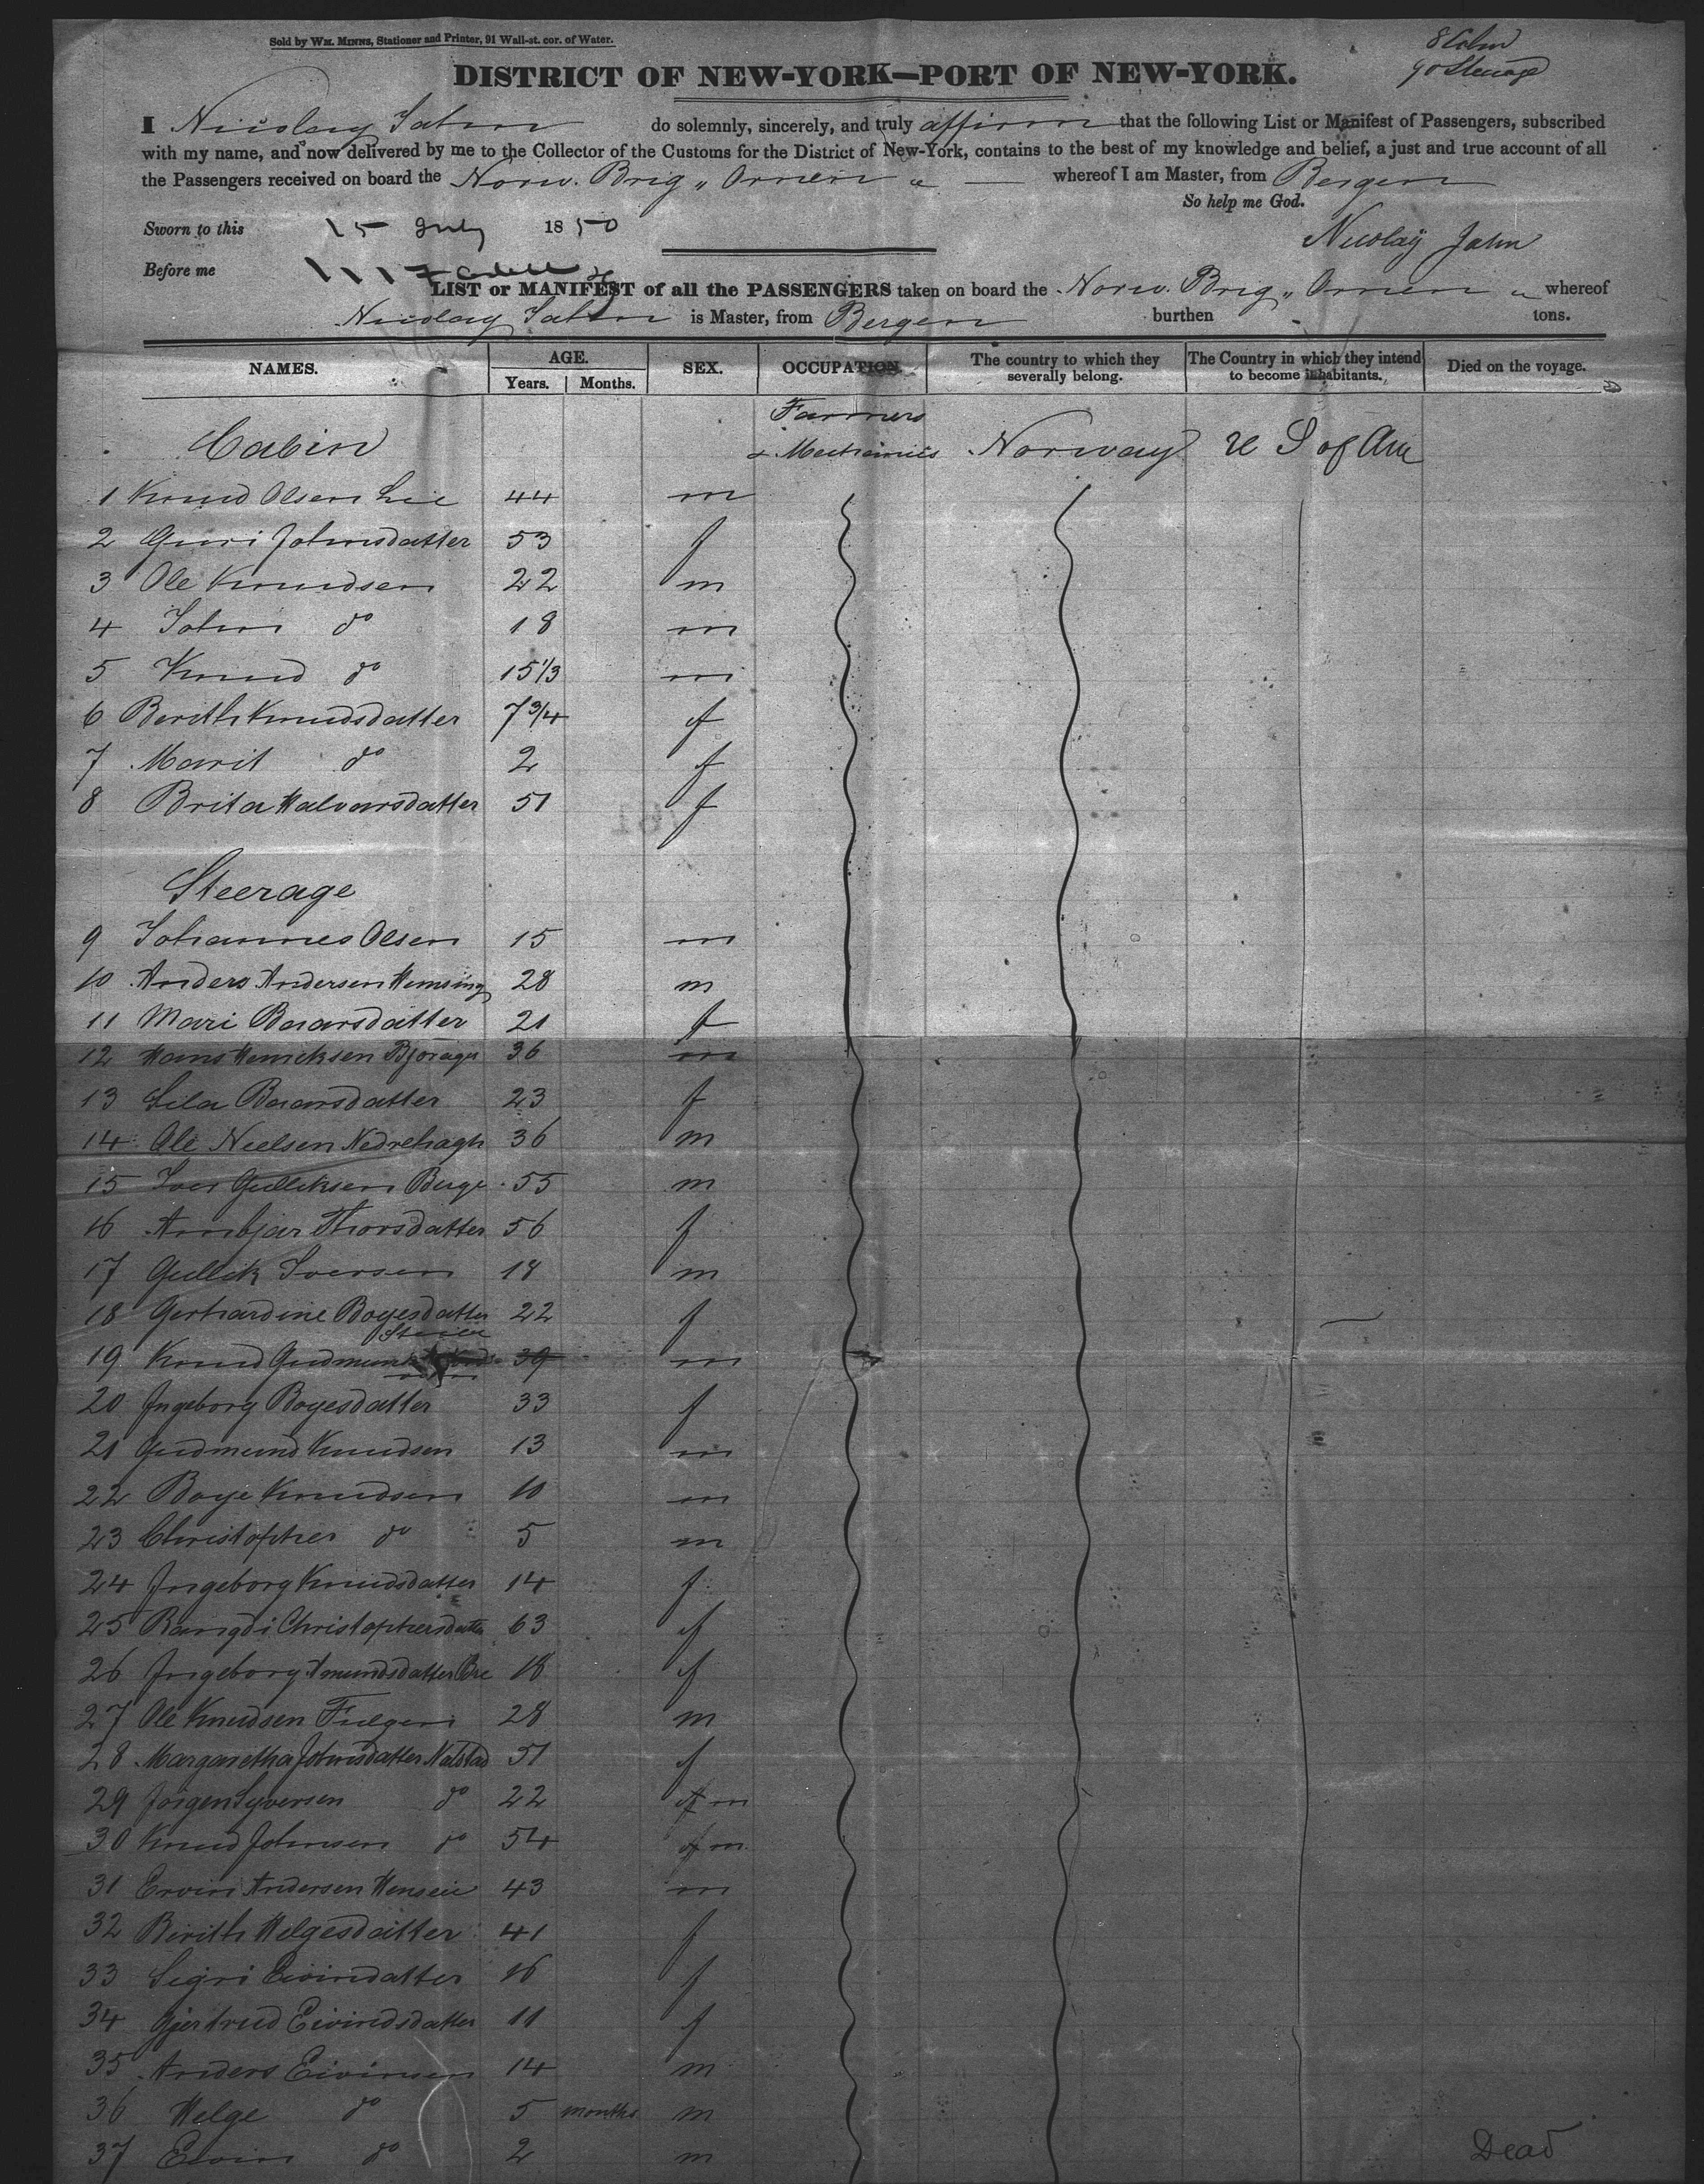 Sold by WM. MINNS, Stationer and Printer, 91 Wall-st. cor. of Water.
8 Cabin
90 Steerage
DISTRICT OF NEW-YORK—PORT OF NEW-YORK.
I Nicolay Jahn do solemnly, sincerely, and truly affirm that the following List or Manifest of Passengers, subscribed
with my name, and now delivered by me to the Collector of the Customs for the District of New-York, contains to the best of my knowledge and belief, a just and true account of all
the Passengers received on board the Norw. Brig „ Ornen " whereof I am Master, from Bergen
So help me God.
Sworn to this 15 July 1850
Nicolay Jahn
Before me
LIST or MANIFEST of all the PASSENGERS taken on board the Norw. Brig „ Ornen " whereof
Nicolay Jahn is Master, from Bergen burthen tons.
NAMES. AGE. SEX. OCCUPATION. The country to which they severally belong. The Country in which they intend to become inhabitants. Died on the voyage.
Years. Months.
Cabin Farmers & Mechanics Norway U S of Am
1 Knud Olsen Lie 44 m
2 Guri Johnsdatter 53 f
3 Ole Knudsen 22 m
4 John do 18 m
5 Knud do 15 1/3 m
6 Berith Knudsdatter 7 3/4 f
7 Marit do 2 f
8 Brita Halvarsdatter 51 f
Steerage
9 Johannes Olsen 15 m
10 Anders Andersen Hemsing 28 m
11 Mari Baarsdatter 21 f
12 Hans Henriksen 36 m
13 Sila Baarsdatter 23 f
14 Ole Nielsen Nedrehagh 36 m
15 Iver Gulliksen Berge 55 m
16 Ambjar Thorsdatter 56 f
17 Gullik Iversen 18 m
18 Gerhardine Boyesdatter 22 f
19 Knud Gudmund 39 m
20 Ingeborg Boyesdatter 33 f
21 Gudmund Knudsen 13 m
22 Boye Knudsen 10 m
23 Christopher do 5 m
24 Ingeborg Knudsdatter 14 f
25 Rangdi Christophersdatter 63 f
26 Ingeborg Amundsdatter Bre 18 f
27 Ole Knudsen 28 m
28 Margaretha Johnsdatter Nalstad 51 f
29 Jorgen Syversen do 22 m
30 Knud Johnsen do 54 m
31 Ervin Andersen 43 m
32 Birith Helgesdatter 41 f
33 Sigri Eivindatter 16 f
34 Gjertrud Eivindsdatter 11 f
35 Anders Eivinsen 14 m
36 Helge do 5 months m
37 Ervin do 2 m Dead